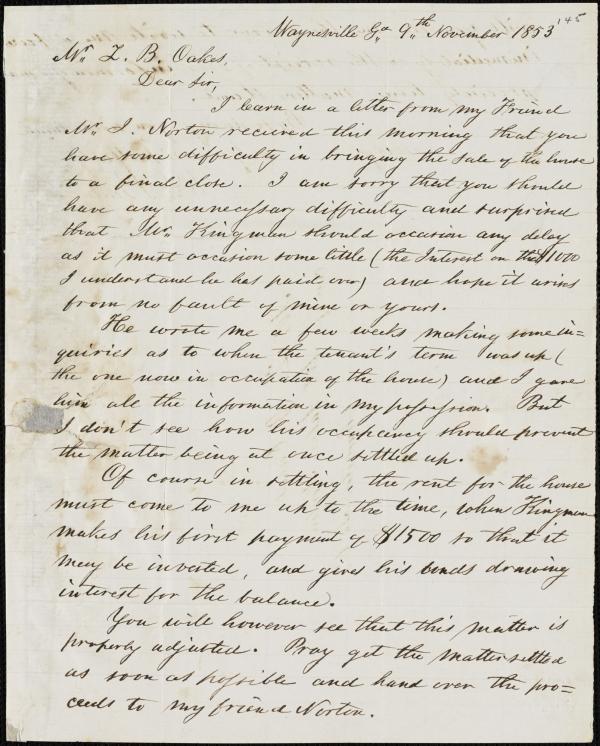 145
Waynesville Ga. 9th November 1853
Mr. Z. B. Oakes,
Dear Sir,
I learn in a letter from my Friend
Mr. J. Norton received this morning that you
have some difficulty in bringing the sale of the house
to a final close. I am sorry that you should
have any unnecessary difficulty and surprised
that Mr. Kingman should occasion any delay
as it must occasion some little (the Interest on the $1000
I understand he has paid over) and hope it arises
from no fault of mine or yours.
He wrote me a few weeks making some in=
quiries as to when the tenant's term was up (
the one now in occupation of the house) and I gave
him all the information in my possession. But
I don't see how his occupancy should prevent
the matter being at once settled up.
Of course in settling, the rent for the house
must come to me up to the time, when Kingman
makes his first payment of $1500 so that it
may be invested, and gives his bonds drawing
interest for the balance.
You will however see that this matter is
properly adjusted. Pray get the matter settled
as soon as possible and hand over the pro=
ceeds to my friend Norton.